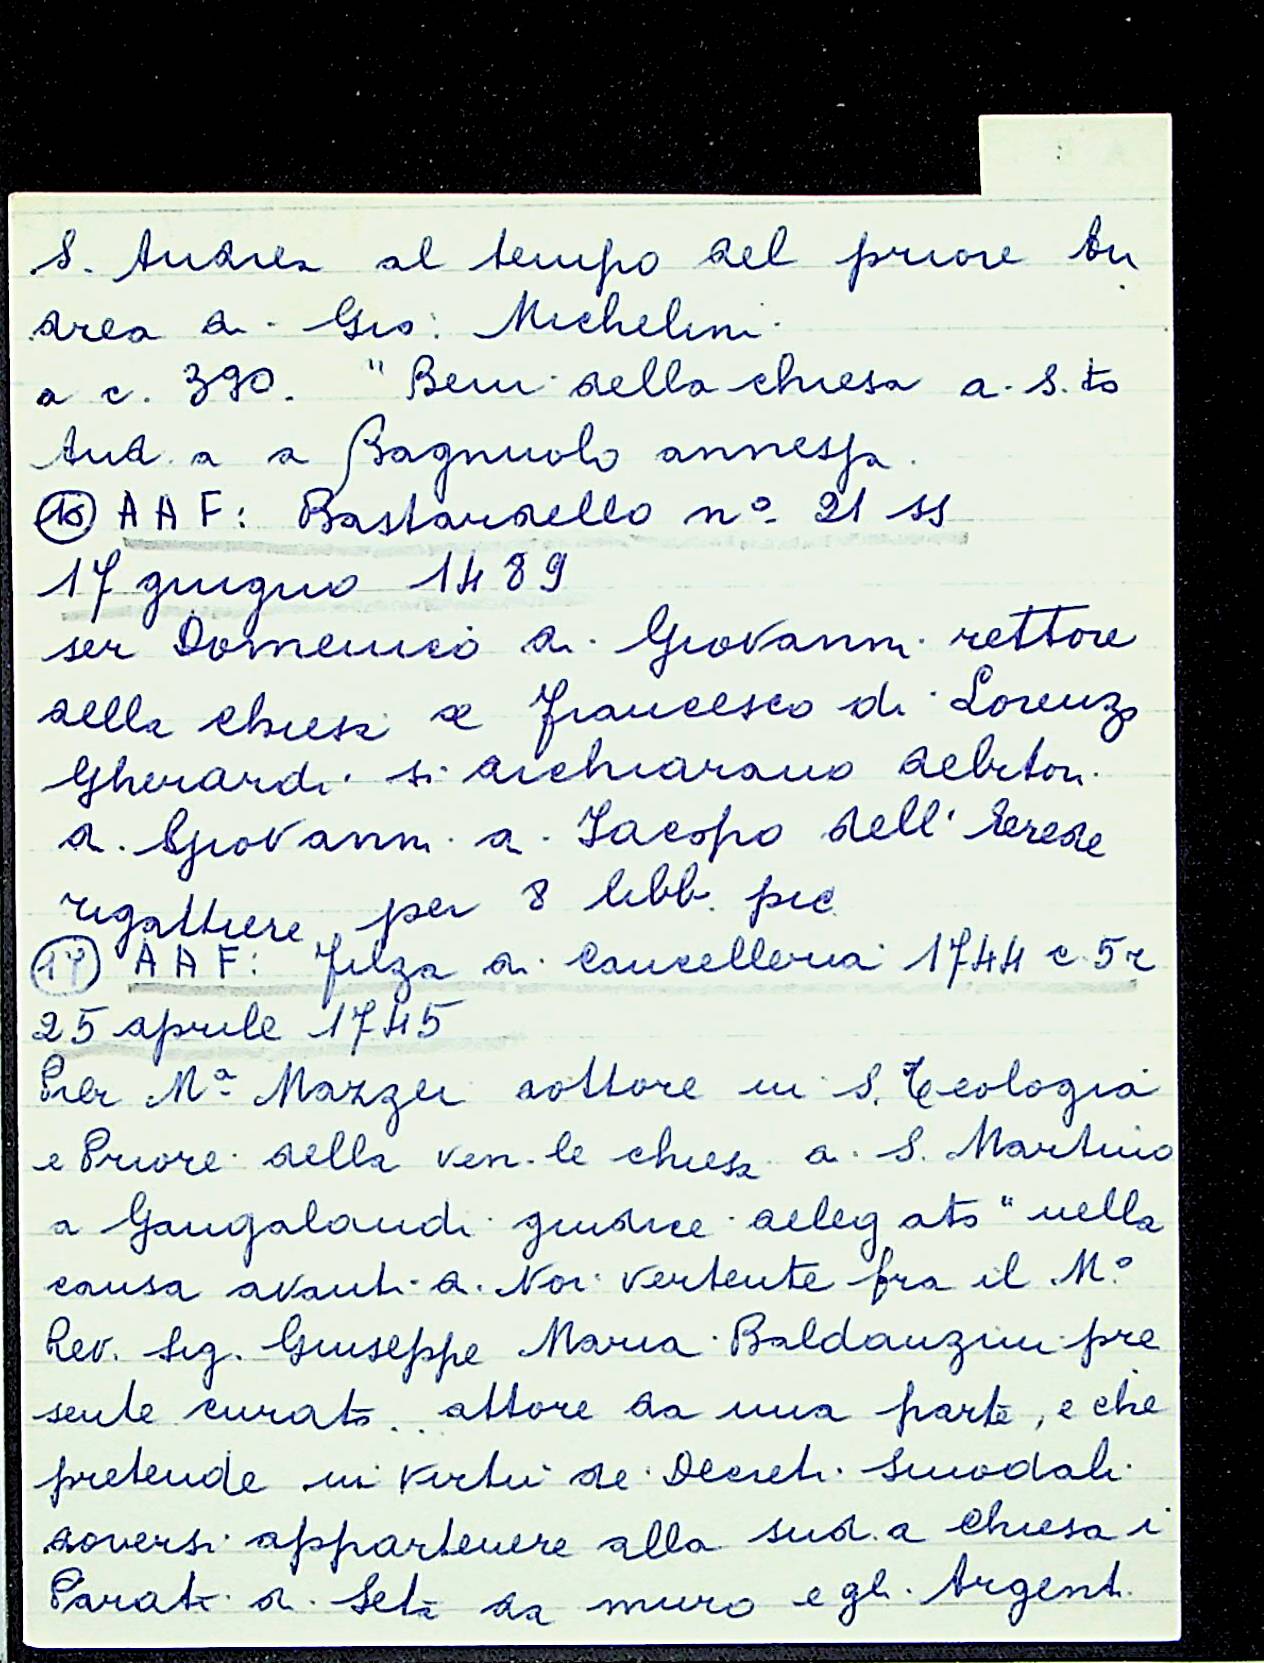 S. Andrea al tempo del priore An
drea di Gio: Michelini.
a c. 390. "Beni della chiesa di S.to
And.a a Bagnuolo annessa.
16 AAF: Bastardello nº 21 ss
17 giugno 1489
ser Domenico di Giovanni rettore
della chiesa e Francesco di Lorenzo
Gherardi si dichiarano debitori
di Giovanni di Jacopo dell'Erede
rigattiere per 8 libb. pic
17 AAF: Filza di Cancelleria 1744 c 5r
25 aprile 1745
Pier Mª Mazzei dottore in S. Teologia
e Priore della ven.le chiesa di S. Martino
a Gangalandi giudice delegato "nella
causa avanti di Noi vertente fra il M.º
Rev. Sig. Giuseppe Maria Baldanzini pre
sente curato... attore da una parte, e che
pretende in virtù de Decreti Sinodali
doversi appartenere alla sud.a Chiesa i
Parati di Seta da muro e gli Argenti